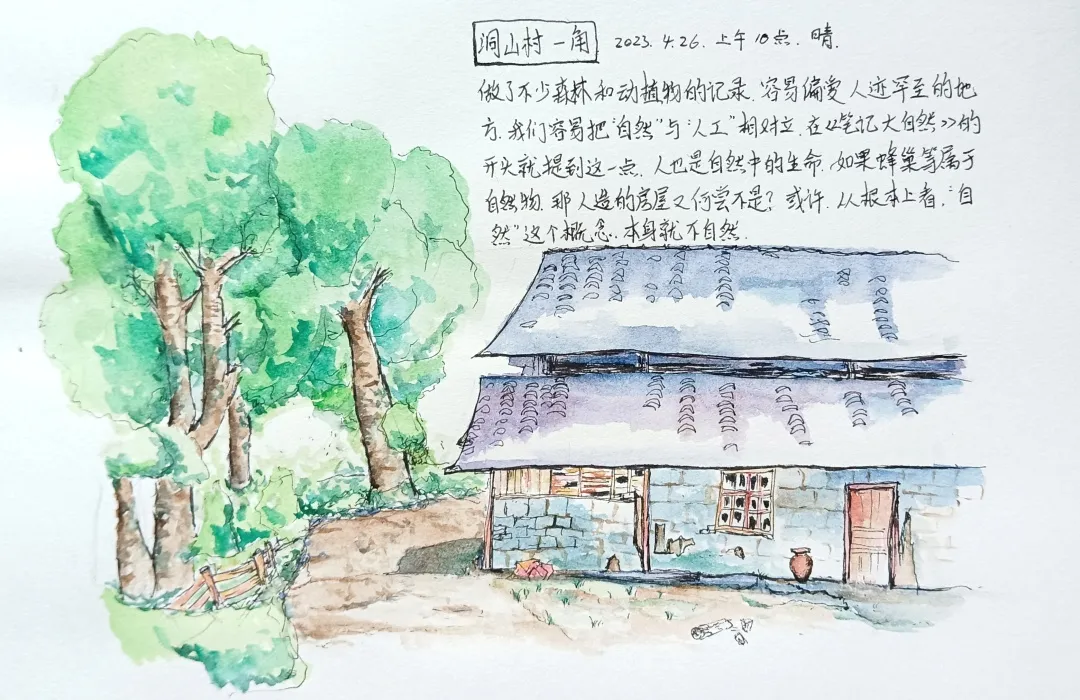 洞山村一角 2023.4.26.上午10点.晴.
做了不少森林和动植物的记录.容易偏爱人迹罕至的地
方.我们容易把"自然"与"人工"相对立.在《笔记大自然》的
开头就提到这一点.人也是自然中的生命.如果蜂巢等属于
自然物.那人造的房屋又何尝不是?或许.从根本上看,"自
然"这个概念.本身就不自然.